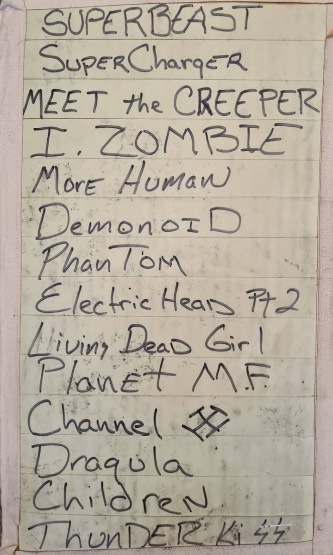 SUPERBEAST
SUPERChargER
MEET the CREEPER
I. ZOMBIE
MorE HumaN
DemonoID
PhanTOM
Electric HeaD Pt 2
Living DeaD Girl
PlanEt M.F.
Channel
Dragula
ChildreN
ThunDER Kiss